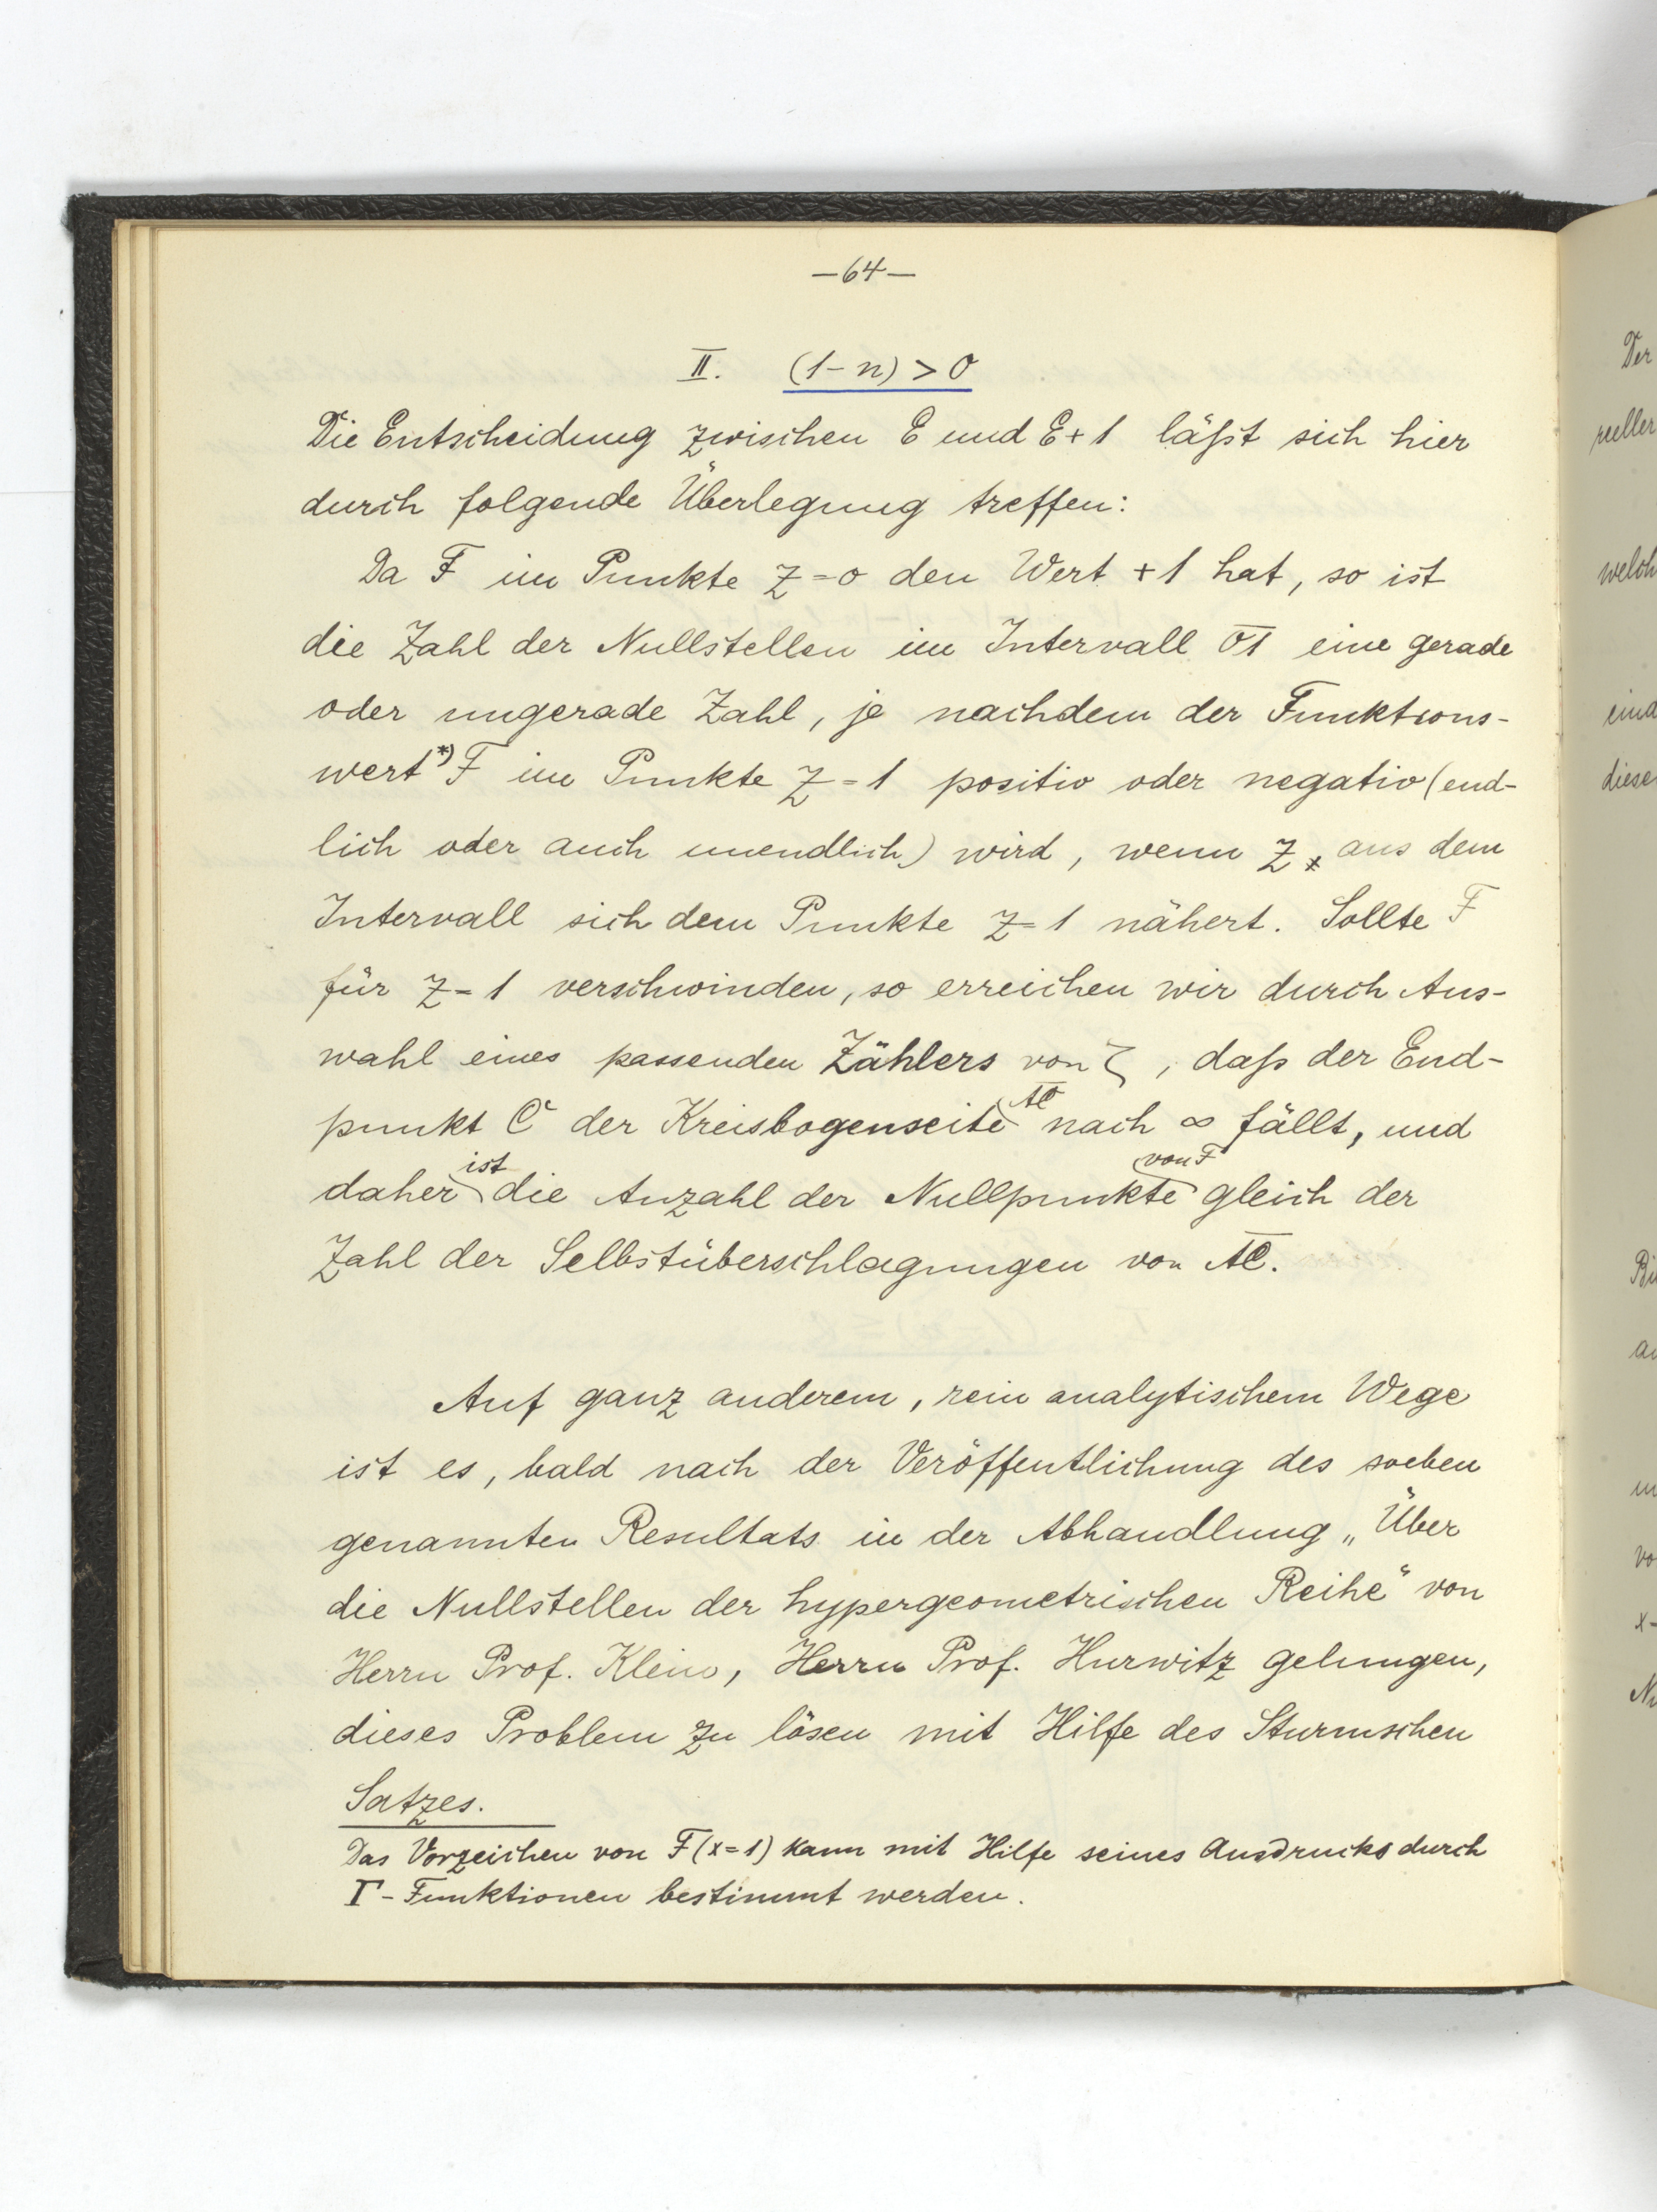 —64—
II. (1-n) > 0
Die Entscheidung zwischen E und E+1 läßt sich hier
durch folgende Überlegung treffen:
Da F im Punkte z=0 den Wert +1 hat, so ist
die Zahl der Nullstellen im Intervall 0̅1̅ eine gerade
oder ungerade Zahl, je nachdem der Funktions-
wert*) F im Punkte z=1 positiv oder negativ (end-
lich oder auch unendlich) wird, wenn z aus dem
Intervall sich dem Punkte z=1 nähert. Sollte F
für z=1 verschwinden, so erreichen wir durch Aus-
wahl eines passenden Zählers von ζ, daß der End-
punkt C der Kreisbogenseite A̅C̅ nach ∞ fällt, und
daher ist die Anzahl der Nullpunkte von F gleich der
Zahl der Selbstüberschlagungen von A̅C̅.
Auf ganz anderem, rein analytischem Wege
ist es, bald nach der Veröffentlichung des soeben
genannten Resultats in der Abhandlung „Über
die Nullstellen der hypergeometrischen Reihe“ von
Herrn Prof. Klein, Herrn Prof. Hurwitz gelungen,
dieses Problem zu lösen mit Hilfe des Sturmschen
Satzes.
Das Vorzeichen von F(x=1) kann mit Hilfe seines Ausdrucks durch
Γ-Funktionen bestimmt werden.